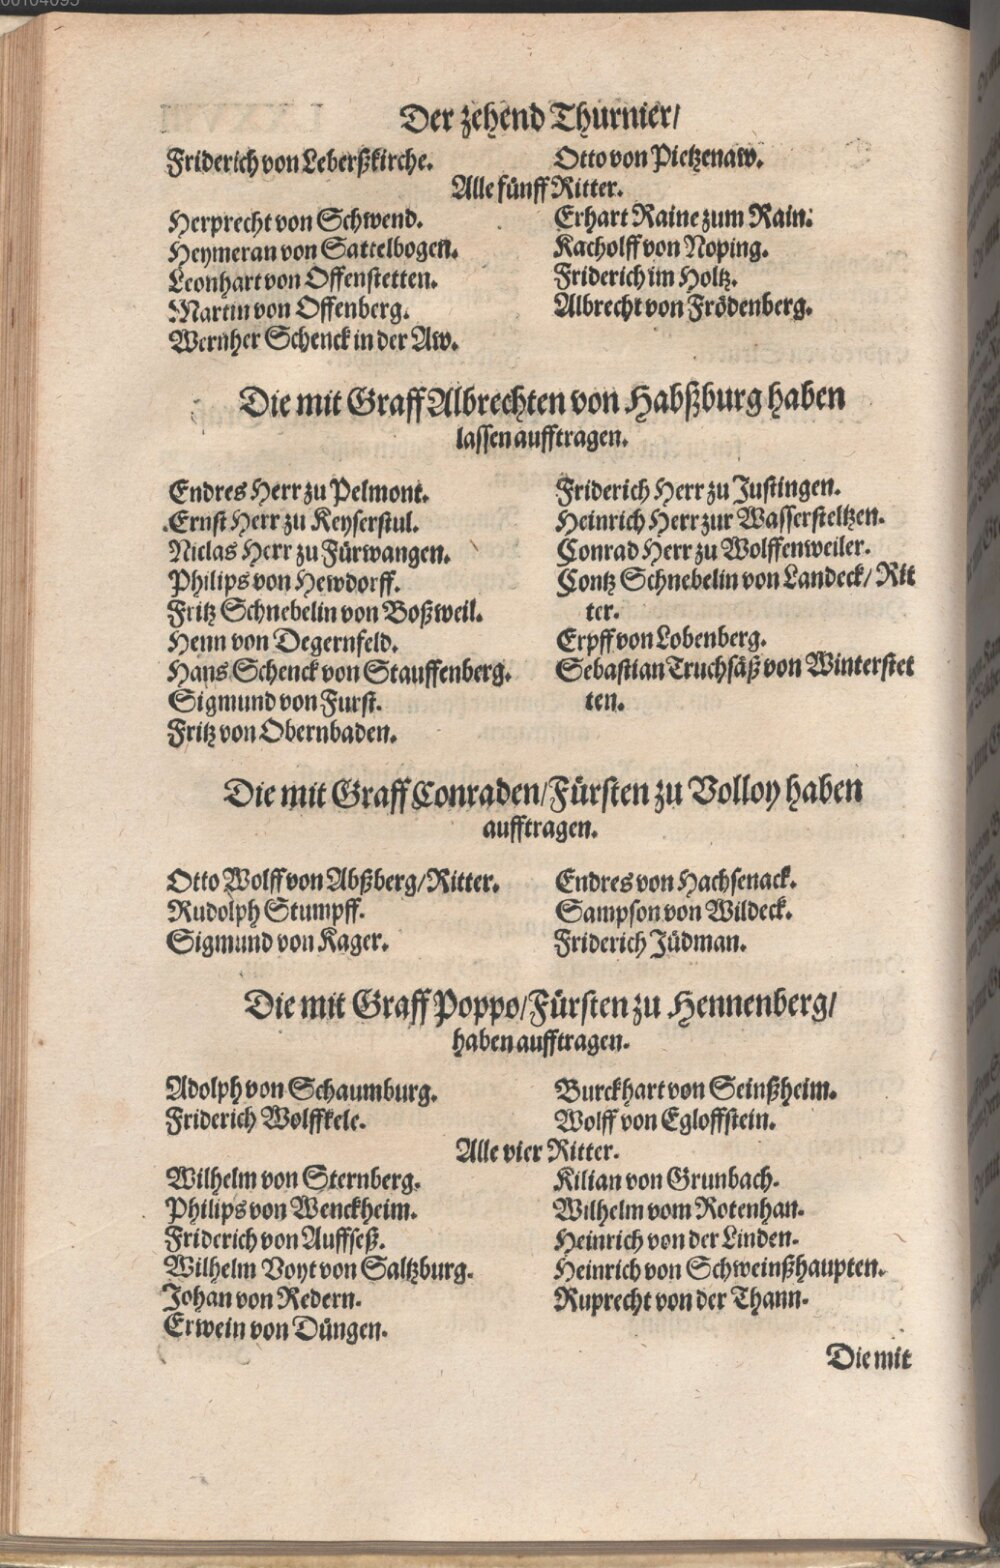 Der zehend Thurnier/
Friderich von Leberßkirche.
Otto von Pietzenaw.
Alle fünff Ritter.
Herprecht von Schwend.
Heymeran von Sattelbogen.
Leonhart von Offenstetten.
Martin von Offenberg.
Wernher Schenck in der Aw.
Erhart Raine zum Rain.
Kacholff von Noping.
Friderich im Holtz.
Albrecht von Frödenberg.
Die mit Graff Albrechten von Habßburg haben
lassen aufftragen.
Endres Herr zu Pelmont.
Ernst Herr zu Keyserstul.
Niclas Herr zu Fürwangen.
Philips von Hewdorff.
Fritz Schnebelin von Boßweil.
Henn von Degernfeld.
Hans Schenck von Stauffenberg.
Sigmund von Furst.
Fritz von Obernbaden.
Friderich Herr zu Justingen.
Heinrich Herr zur Wassersteltzen.
Conrad Herr zu Wolffenweiler.
Contz Schnebelin von Landeck/ Rit
ter.
Erpff von Lobenberg.
Sebastian Truchsäß von Winterstet
ten.
Die mit Graff Conraden/Fürsten zu Volloy haben
aufftragen.
Otto Wolff von Abßberg/Ritter.
Rudolph Stumpff.
Sigmund von Kager.
Endres von Hachsenack.
Sampson von Wildeck.
Friderich Jüdman.
Die mit Graff Poppo/Fürsten zu Hennenberg/
haben aufftragen.
Adolph von Schaumburg.
Friderich Wolffkele.
Burckhart von Seinßheim.
Wolff von Egloffstein.
Alle vier Ritter.
Wilhelm von Sternberg.
Philips von Wenckheim.
Friderich von Auffseß.
Wilhelm Voyt von Saltzburg.
Johan von Redern.
Erwein von Düngen.
Kilian von Grunbach.
Wilhelm vom Rotenhan.
Heinrich von der Linden.
Heinrich von Schweinßhaupten.
Ruprecht von der Thann.
Die mit